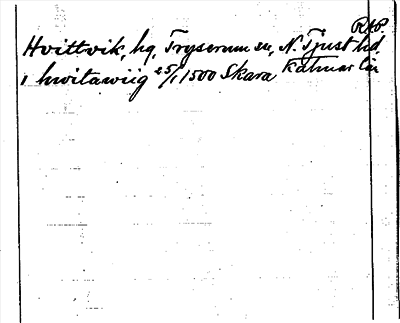 RAP.
Hvittvik, hg, Tryserum sn, N. Tjust hd
Kalmar län
i hwitawiig 25/1 1500 Skara